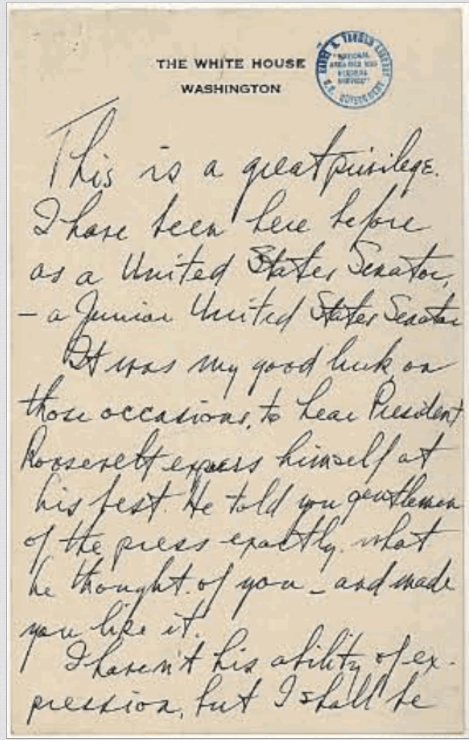 THE WHITE HOUSE
WASHINGTON
HARRY S. TRUMAN LIBRARY
"NATIONAL
ARCHIVES AND
RECORDS
SERVICE"
U.S. GOVERNMENT
This is a great privilege.
I have been here before
as a United States Senator,
– a Junior United States Senator
It was my good luck on
those occasions, to hear President
Roosevelt express himself at
his best. He told you gentlemen
of the press exactly what
he thought of you – and made
you like it.
I haven't his ability of ex-
pression, but I shall be